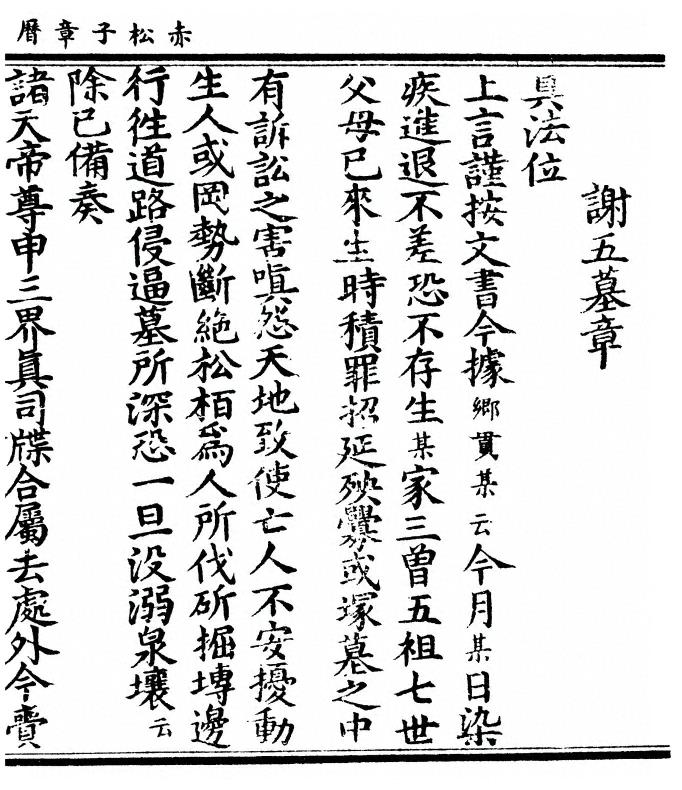 赤松子章曆
謝五墓章
具法位
上言謹按文書今據鄉貫某云今月某日染
疾進退不差恐不存生某家三曾五祖七世
父母已來生時積罪招延殃釁或塚墓之中
有訴訟之害嗔怨天地致使亡人不安擾動
生人或岡勢斷絕松栢爲人所伐斫掘塼邊
行徃道路侵逼墓所深恐一旦没溺泉壤云
除已備奏
諸天帝尊申三界眞司牒合屬去處外今賫